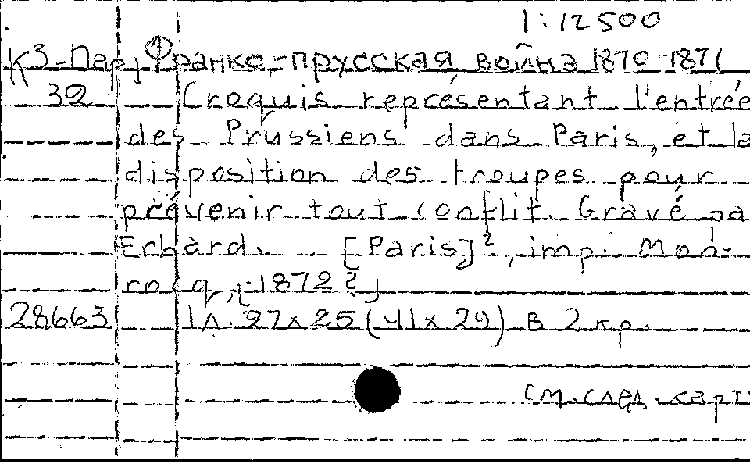 1:12500
К3-Пар, Франко-прусская война 1870-1871
32 Croquis représentant l'entrée
des Prussiens dans Paris, et la
disposition des troupes pour
prévenir tout conflit. Gravé pa
Erhard. [Paris]?, imp. Mon-
rocq, [1872?]
28663 1л. 27x25 (41x29) в 2 кр.
См. след. карт